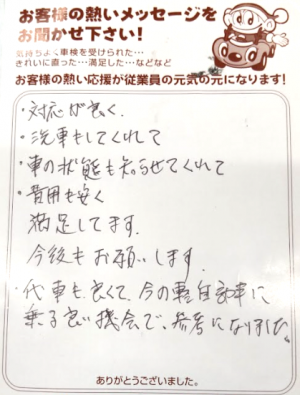 お客様の熱いメッセージを
お聞かせ下さい!
気持ちよく車検を受けられた…
きれいに直った…満足した…などなど
お客様の熱い応援が従業員の元気の元になります!
・対応が良く、
・洗車もしてくれて
・車の状態も知らせてくれて
・費用も安く
満足してます。
今後もお願いします。
・代車も良くて、今の軽自動車に
乗る良い機会で、参考になりました。
ありがとうございました。